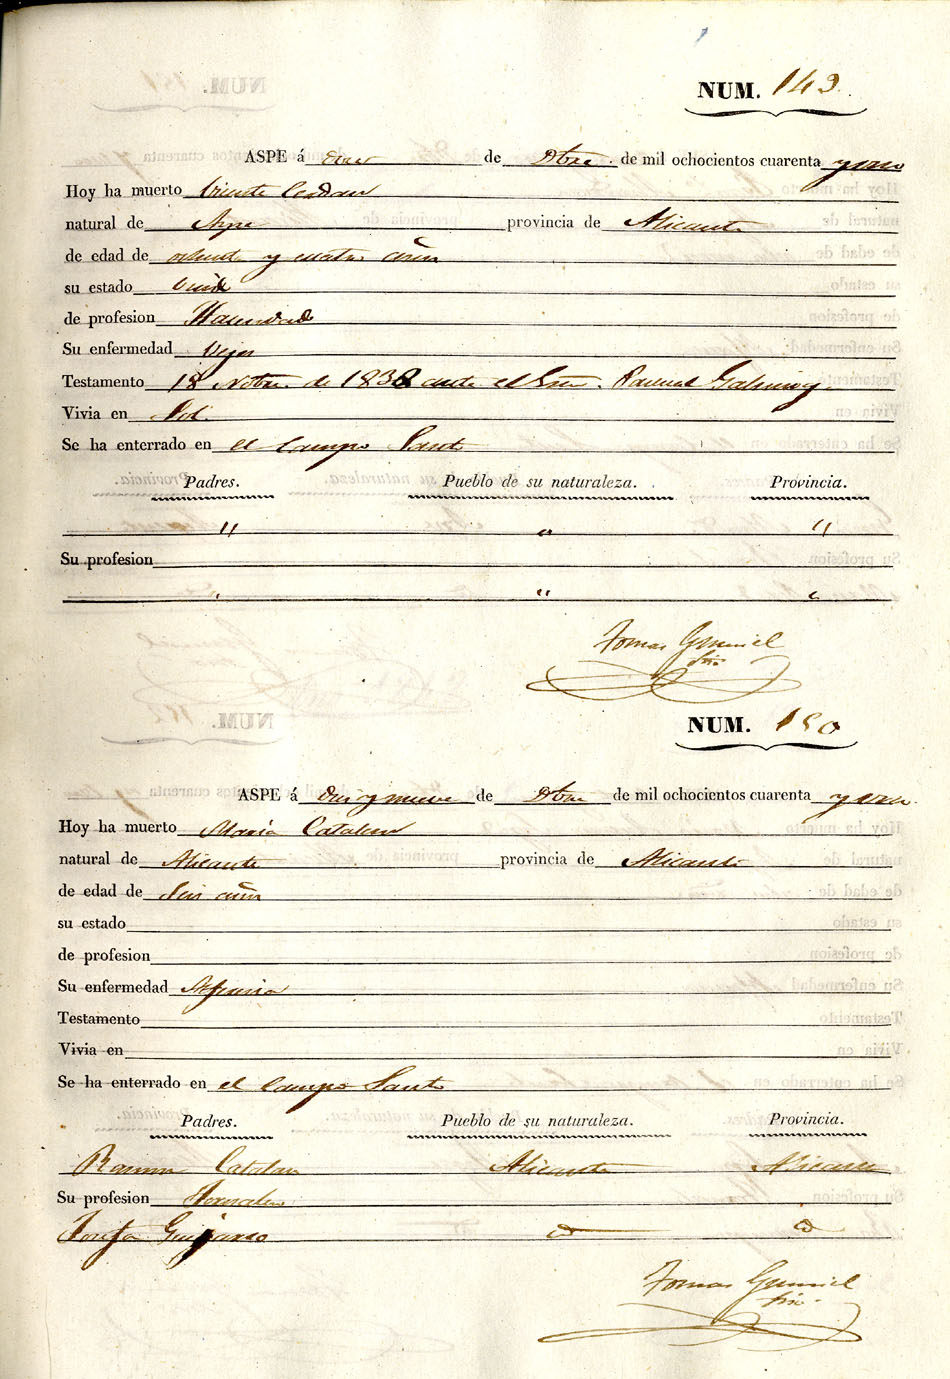 NUM. 149.
ASPE á once de Dbre. de mil ochocientos cuarenta y uno
Hoy ha muerto Vicente
natural de Aspe provincia de Alicante
de edad de ochenta y cuatro años
su estado Viudo
de profesion Hacendado
Su enfermedad Vejez
Testamento 18 Nbre. de 1838 ante el Sno. Pascual
Vivia en
Se ha enterrado en el Campo Santo
Padres. Pueblo de su naturaleza. Provincia.
" " "
Su profesion
" " "
Tomas Gumiel
NUM. 150
ASPE á diez y nueve de Dbre de mil ochocientos cuarenta y uno.
Hoy ha muerto María Catalan
natural de Alicante provincia de Alicante
de edad de seis años
su estado
de profesion
Su enfermedad
Testamento
Vivia en
Se ha enterrado en el Campo Santo
Padres. Pueblo de su naturaleza. Provincia.
Ramon Catalan Alicante Alicante
Su profesion Jornalero
Josefa Guijarro
Tomas Gumiel